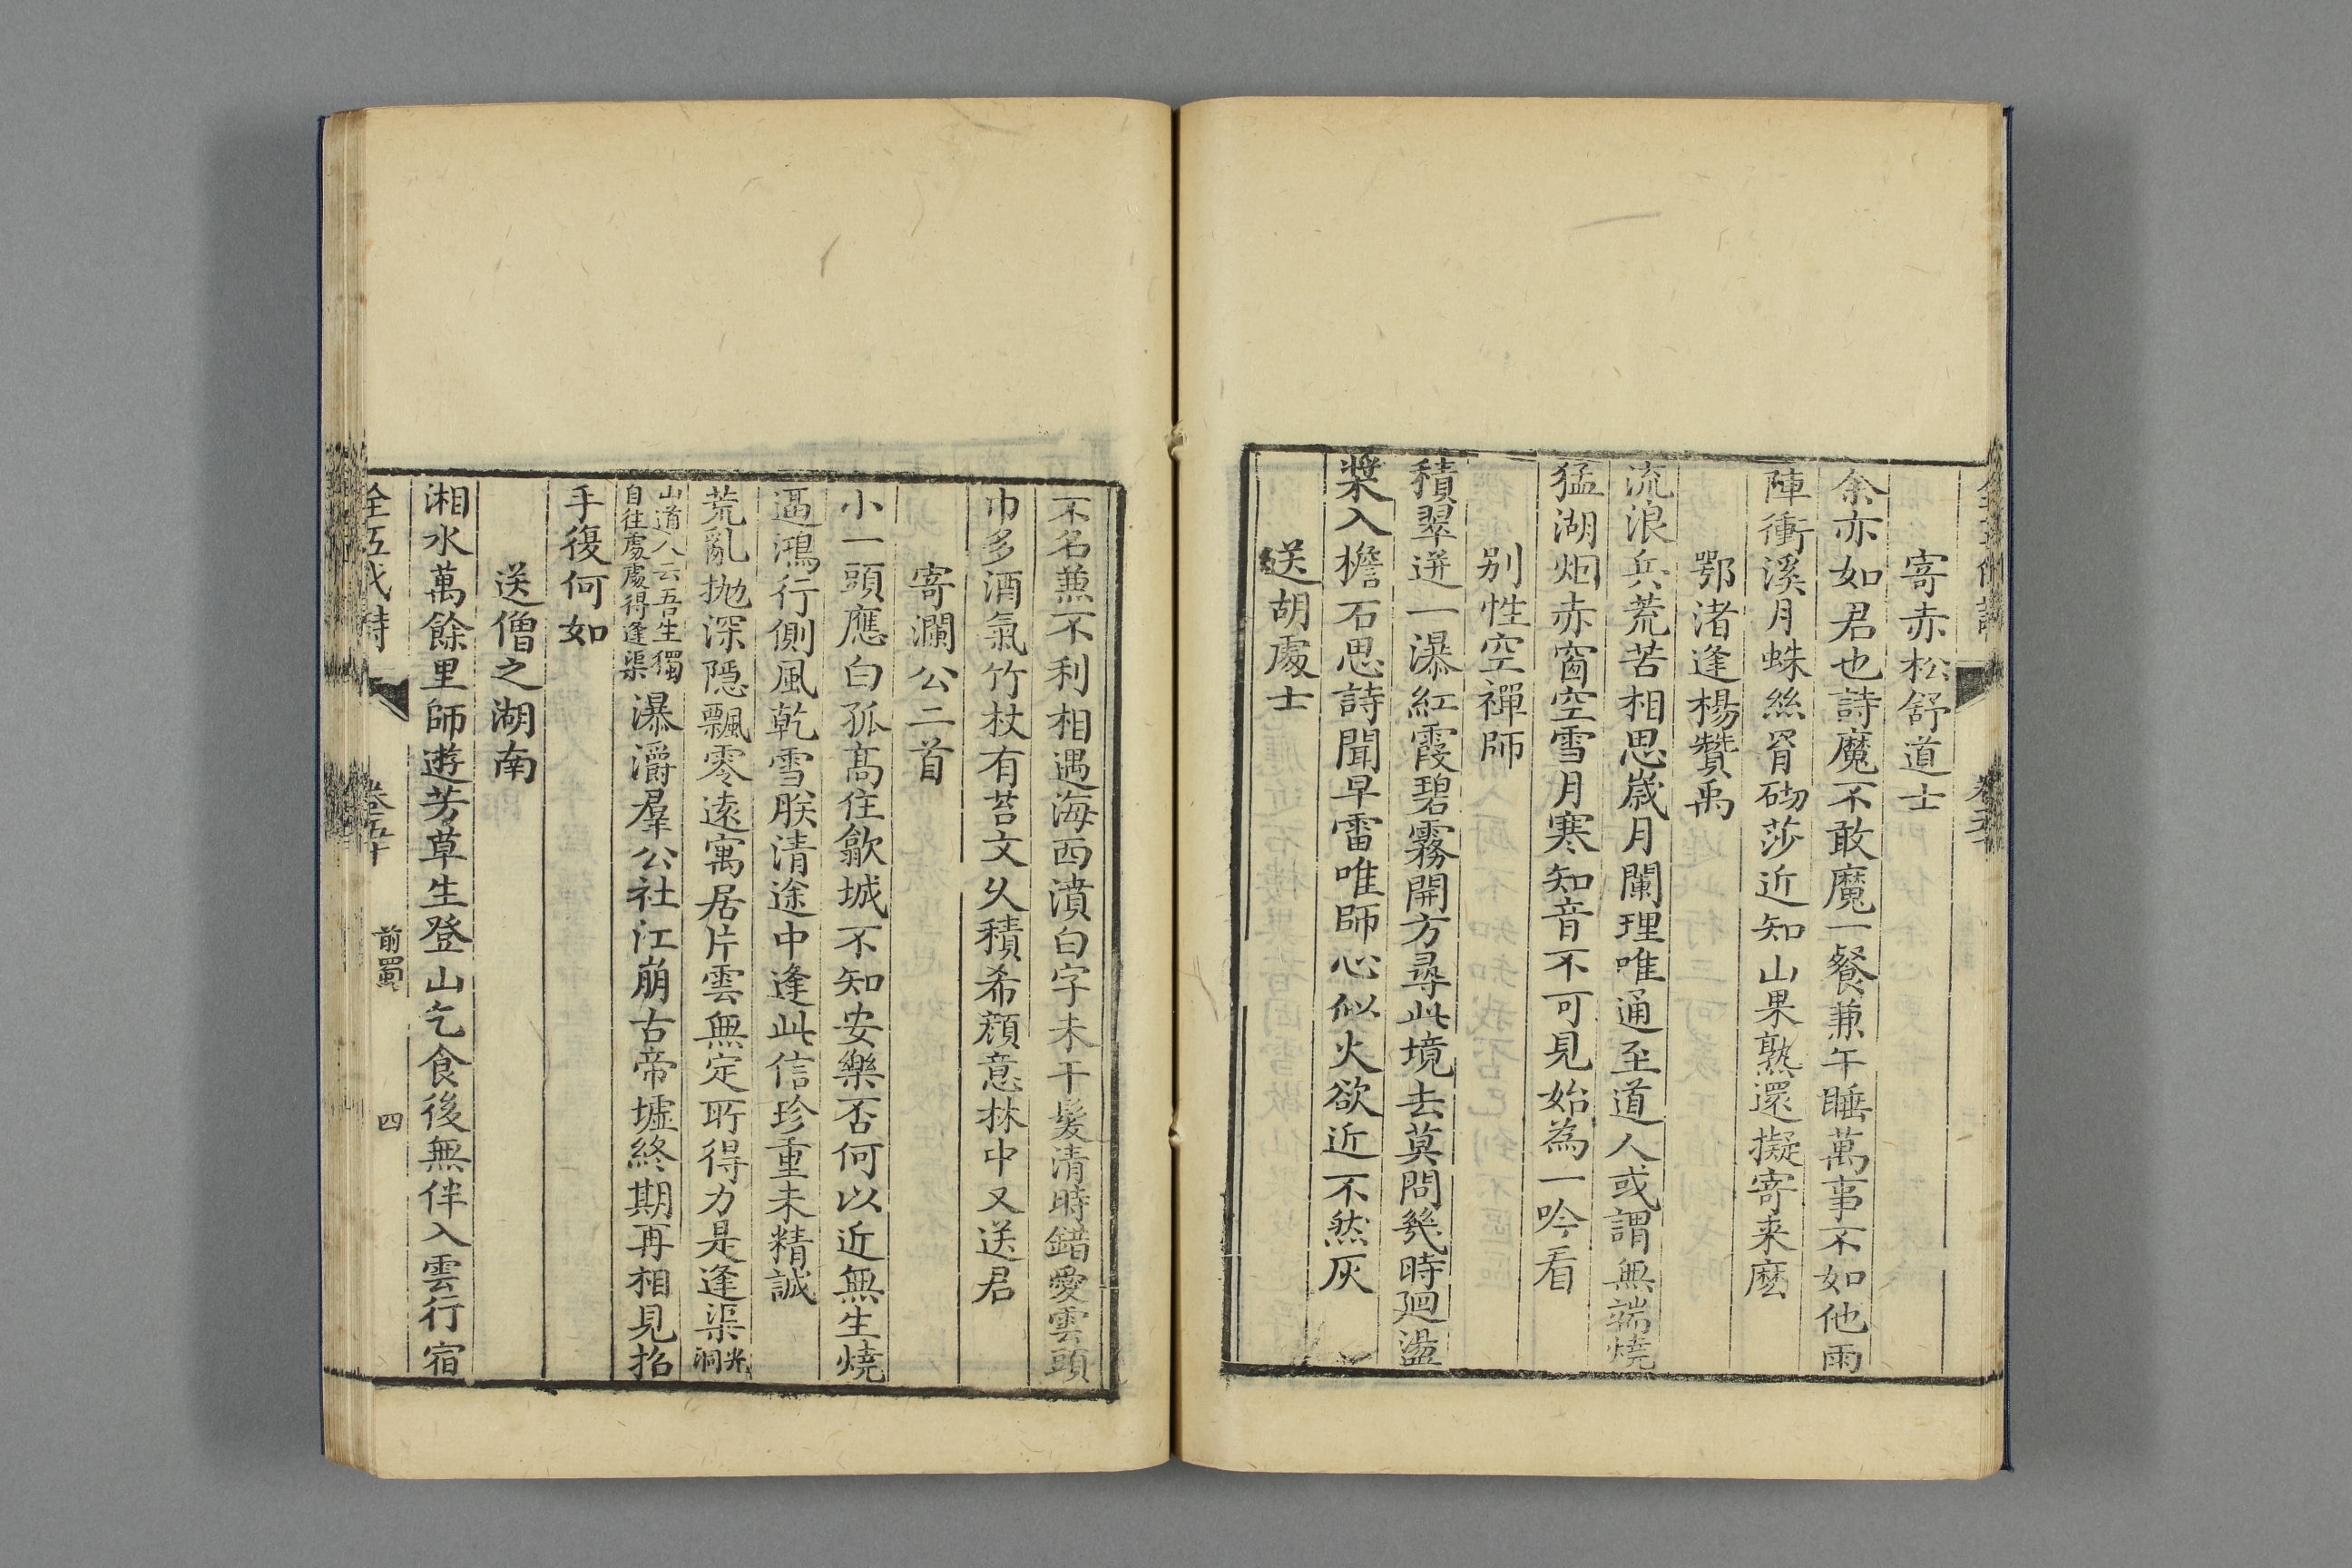 寄赤松舒道士
余亦如君也詩魔不敢魔一餐兼午睡萬事不如他雨
陣衝溪月蛛絲罥砌莎近知山果熟還擬寄来麼
鄂渚逢楊贊禹
流浪兵荒苦相思歲月闌理唯通至道人或謂無端燒
猛湖炬赤窗空雪月寒知音不可見始為一吟看
别性空禪師
積翠迸一瀑紅霞碧霧開方尋此境去莫問幾時廻盪
槳入檐石思詩聞早雷唯師心似火欲近不然灰
送胡處士
不名兼不利相遇海西濆白字未干髮清時錯愛雲頭
巾多酒氣竹杖有苔文久積希顔意林中又送君
寄瀾公二首
小一頭應白孤髙住歙城不知安樂否何以近無生燒
逼鴻行側風乾雪朕清途中逢此信珍重未精誠
荒亂抛深隱飄零遠寓居片雲無定所得力是逢渠光洞
山道人云吾生獨自往處處得逢渠瀑灂羣公社江崩古帝墟終期再相見招
手復何如
送僧之湖南
湘水萬餘里師遊芳草生登山乞食後無伴入雲行宿
全五代詩 卷五十 前蜀 四